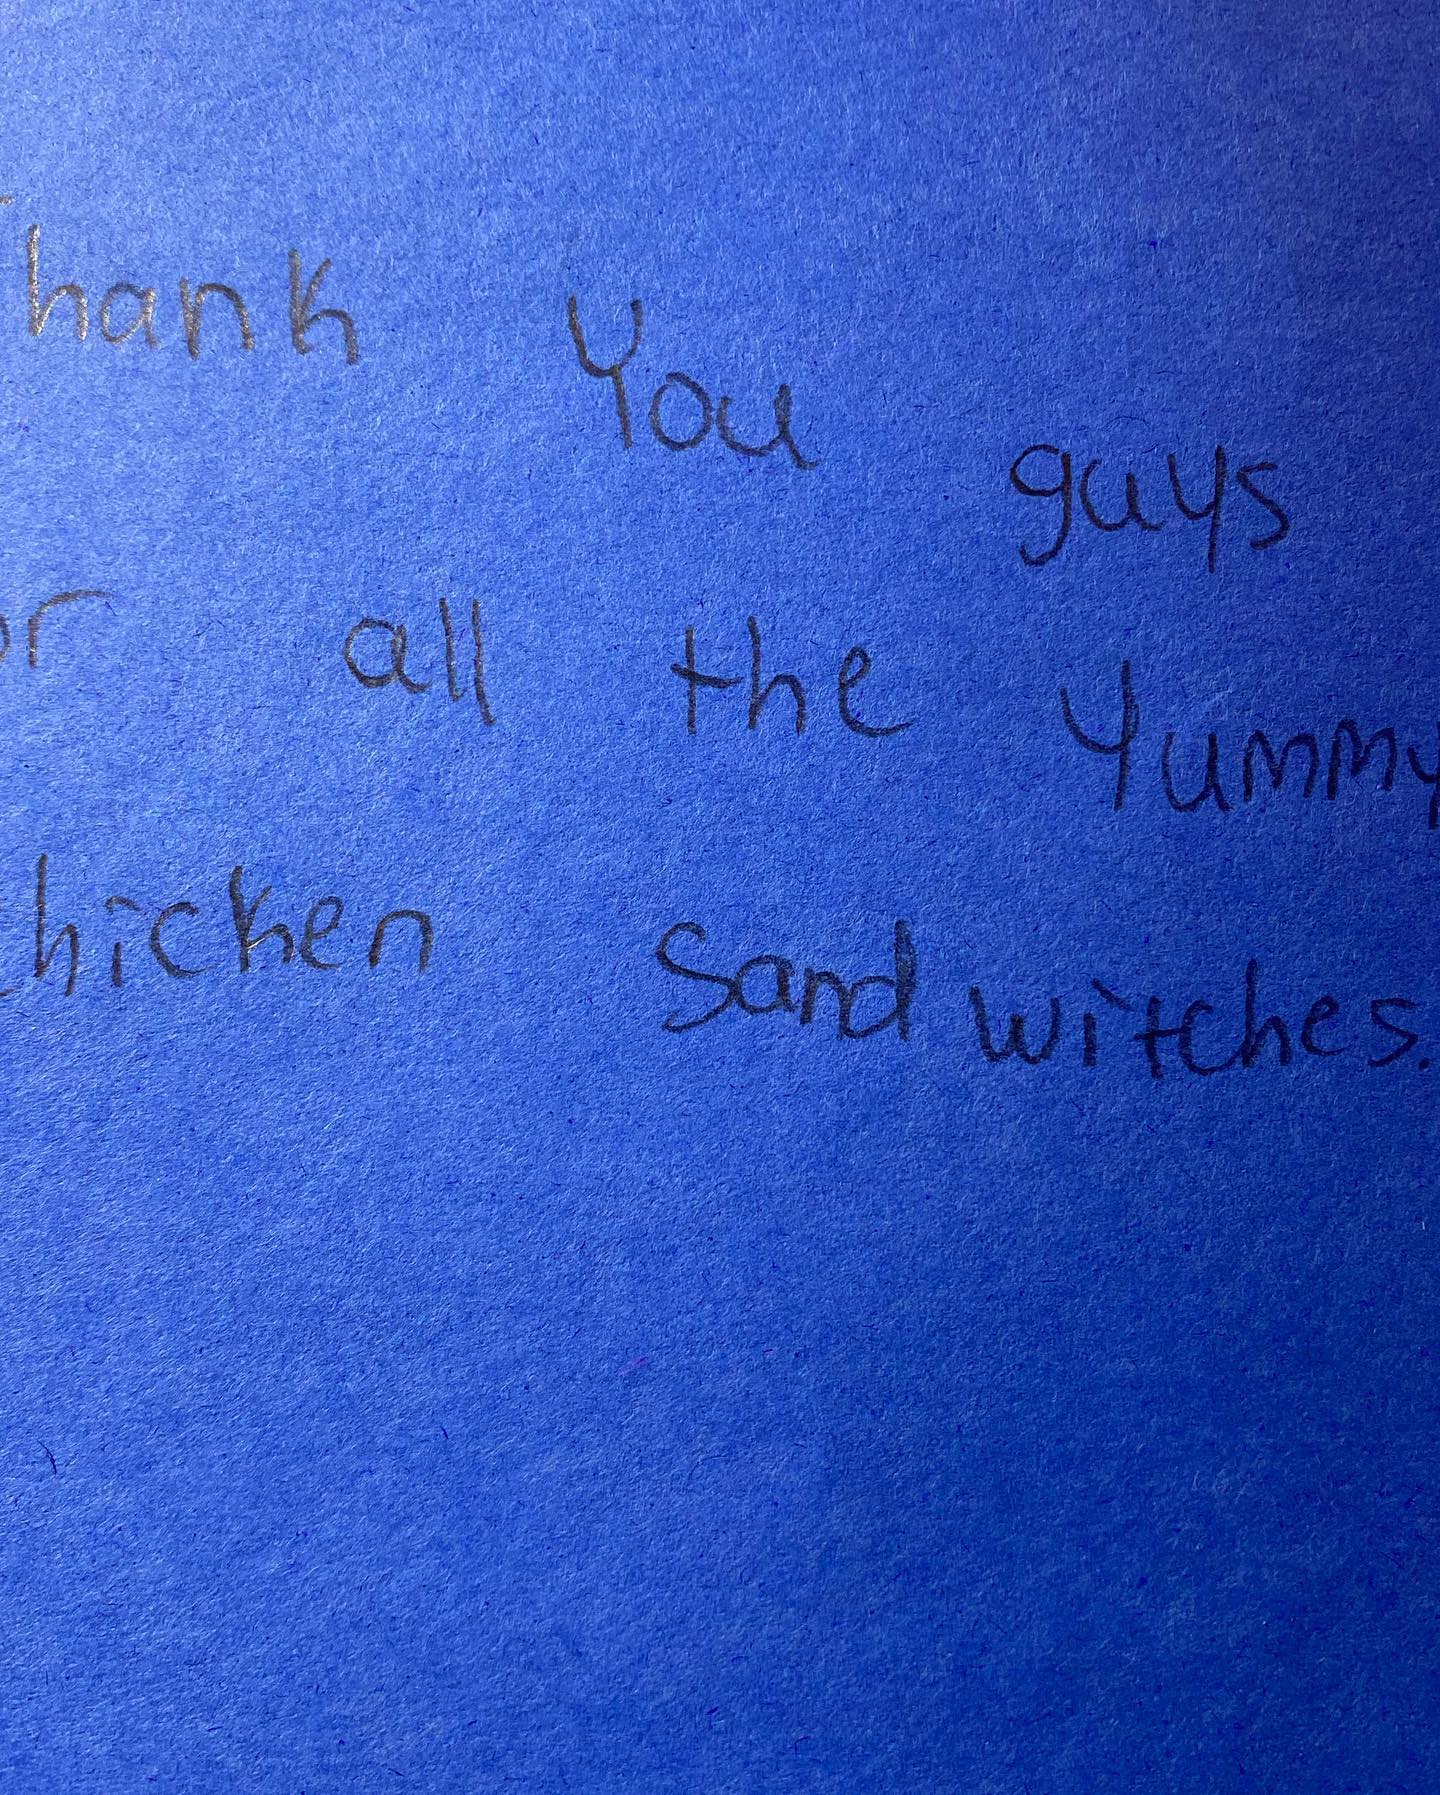 Thank You guys
or all the Yummy
Chicken Sand witches.